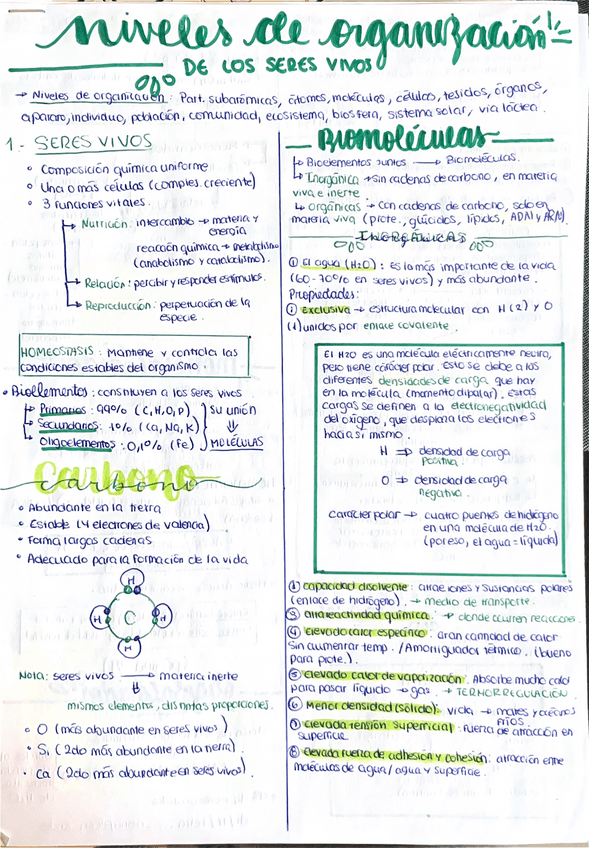 niveles de organización
DE LOS SERES VIVOS
→ Niveles de organización: Part. subatómicas, átomos, moléculas, células, tejidos, órganos,
aparato, individuo, población, comunidad, ecosistema, biosfera, sistema solar, vía láctea.
1.- SERES VIVOS
◦ Composición química uniforme
◦ Una o más células (complej. creciente)
◦ 3 funciones vitales.
→ Nutrición: intercambio → materia y
energía
reacción química → metabolismo
(anabolismo y catabolismo).
→ Relación: percibir y responder estímulos.
→ Reproducción: perpetuación de la
especie.
HOMEOSTASIS: Mantiene y controla las
condiciones estables del organismo.
• Bioelementos: constituyen a los seres vivos
→ Primarios: 99% (C, H, O, P)
→ Secundarios: 1% (Ca, Na, K)
→ Oligoelementos: 0,1% (Fe)
SU UNIÓN
⇓
MOLÉCULAS
Carbono
carbono
• Abundante en la tierra
• Estable (4 electrones de valencia)
• Forma largas cadenas
• Adecuado para la formación de la vida
H
H C H
H
Nota: seres vivos → materia inerte
⇓
mismos elementos, distintas proporciones.
◦ O (más abundante en seres vivos)
• Si, (2do más abundante en la tierra).
• Ca (2do más abundante en seres vivos).
Biomoléculas
→ Bioelementos juntos → Biomoléculas.
→ Inorgánica → sin cadenas de carbono, en materia
viva e inerte
→ orgánicas → con cadenas de carbono, solo en
materia viva (prote., glúcidos, lípidos, ADN y ARN).
INORGÁNICAS
① El agua (H2O): es la más importante de la vida
(60-70% en seres vivos) y más abundante.
Propiedades:
① exclusiva → estructura molecular con H (2) y O
(1) unidos por enlace covalente.
El H2O es una molécula eléctricamente neutra,
pero tiene carácter polar. Esto se debe a las
diferentes densidades de carga que hay
en la molécula (momento dipolar). Estas
cargas se definen a la electronegatividad
del oxígeno, que desplaza los electrones
hacia sí mismo.
H ⇒ densidad de carga
positiva.
O ⇒ densidad de carga
negativa
carácter polar → cuatro puentes de hidrógeno
en una molécula de H2O.
(por eso, el agua = líquida)
② capacidad disolvente: atrae iones y sustancias polares
(enlace de hidrógeno). → medio de transporte.
③ alta reactividad química. → donde ocurren reacciones.
④ elevado calor específico: gran cantidad de calor
sin aumentar temp. / Amortiguador térmico. (bueno
para prote.).
⑤ elevado calor de vaporización: Absorbe mucho calor
para pasar líquido → gas. → TERMORREGULACIÓN.
⑥ Menor densidad (sólido): vida → mares y océanos
fríos.
⑦ elevada tensión superficial: fuerza de atracción en
superficie
⑧ elevada fuerza de adhesión y cohesión: atracción entre
moléculas de agua / agua y superficie.